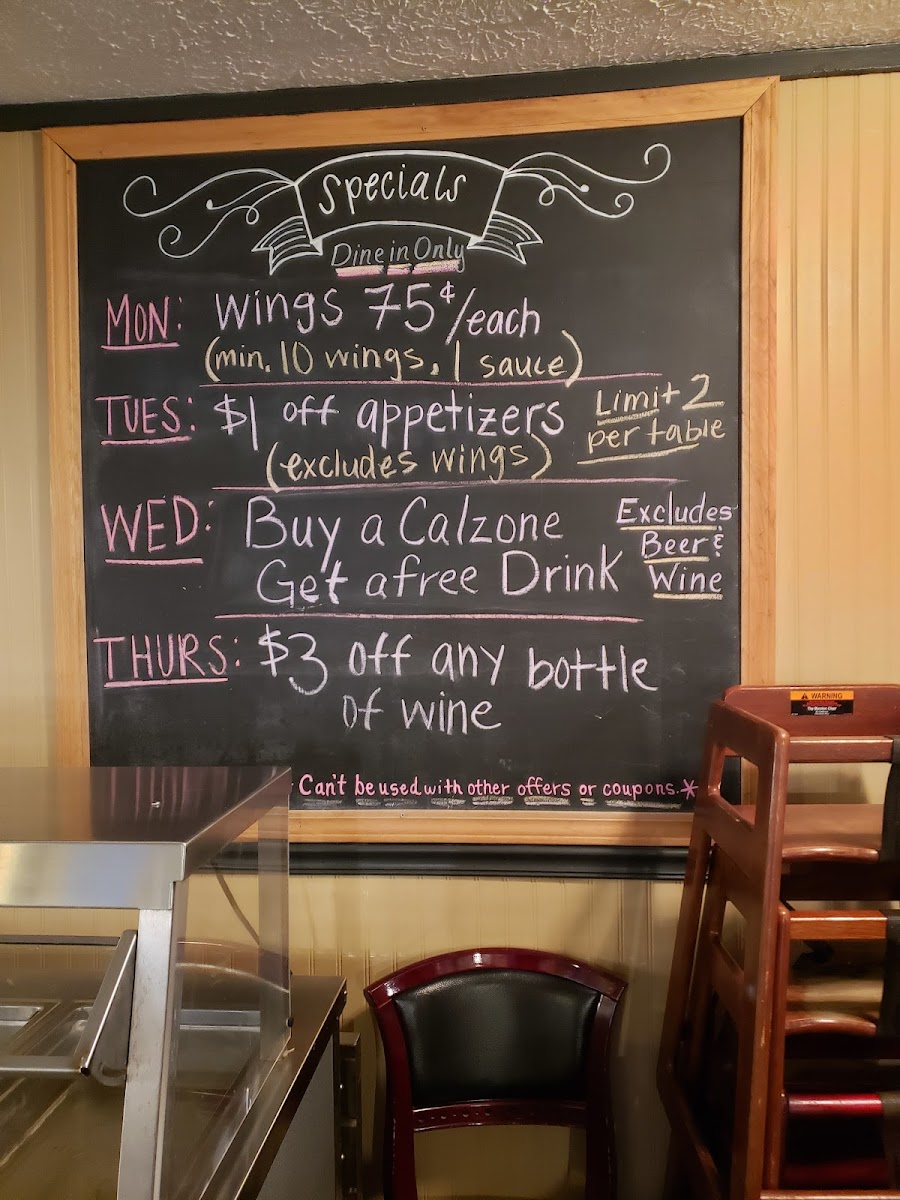 Specials
Dine in Only
MON: Wings 75¢/each
(min. 10 wings, 1 sauce)
TUES: $1 off appetizers
(excludes wings)
Limit 2
per table
WED: Buy a Calzone
Get a free Drink
Excludes
Beer &
Wine
THURS: $3 off any bottle
of wine
Can't be used with other offers or coupons.*
WARNING